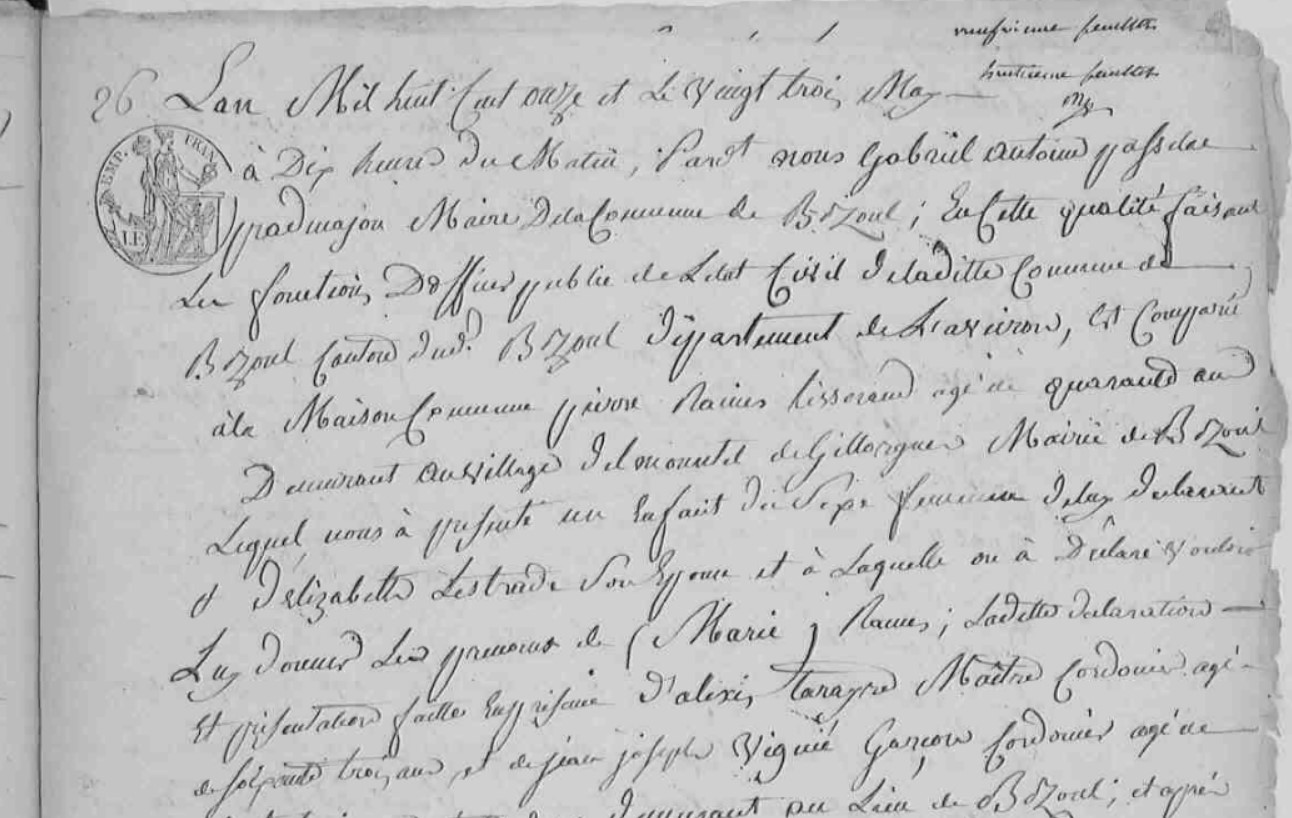 huitieme feuillet
26 Lan Mil huit Cent onze et Le vingt trois May
à Dix heures du Matin, Pardt nous Gabriel antoine
pradmajou Maire Dela Commune de Bozoul; En Cette qualité faisant
Les fonctions Dofficier public de Letat Civil deladitte Commune de
Bozoul Canton dud. Bozoul département de Laveiron, Est Comparu
àla Maison Commune pierre Raines tisserand agé de quarante ans
Demurant au village del monutel de Gillorgues Mairie de Bozoul
Lequel nous à presenté un Enfant du Sexe feminin deluy declarant
et delizabeth Lestrade Son Epouse et à Laquelle on à Declaré vouloir
Luy donner Les prenoms de (Marie) Raines; Laditte declaration
Et presentation faitte En presence d'alexis tarayre Maitre Cordonier agé
de soixante trois ans, et de jean joseph Viguié Garçon Cordonier agé de
demurant au Lieu de Bozoul; et après
EMP. FRAN